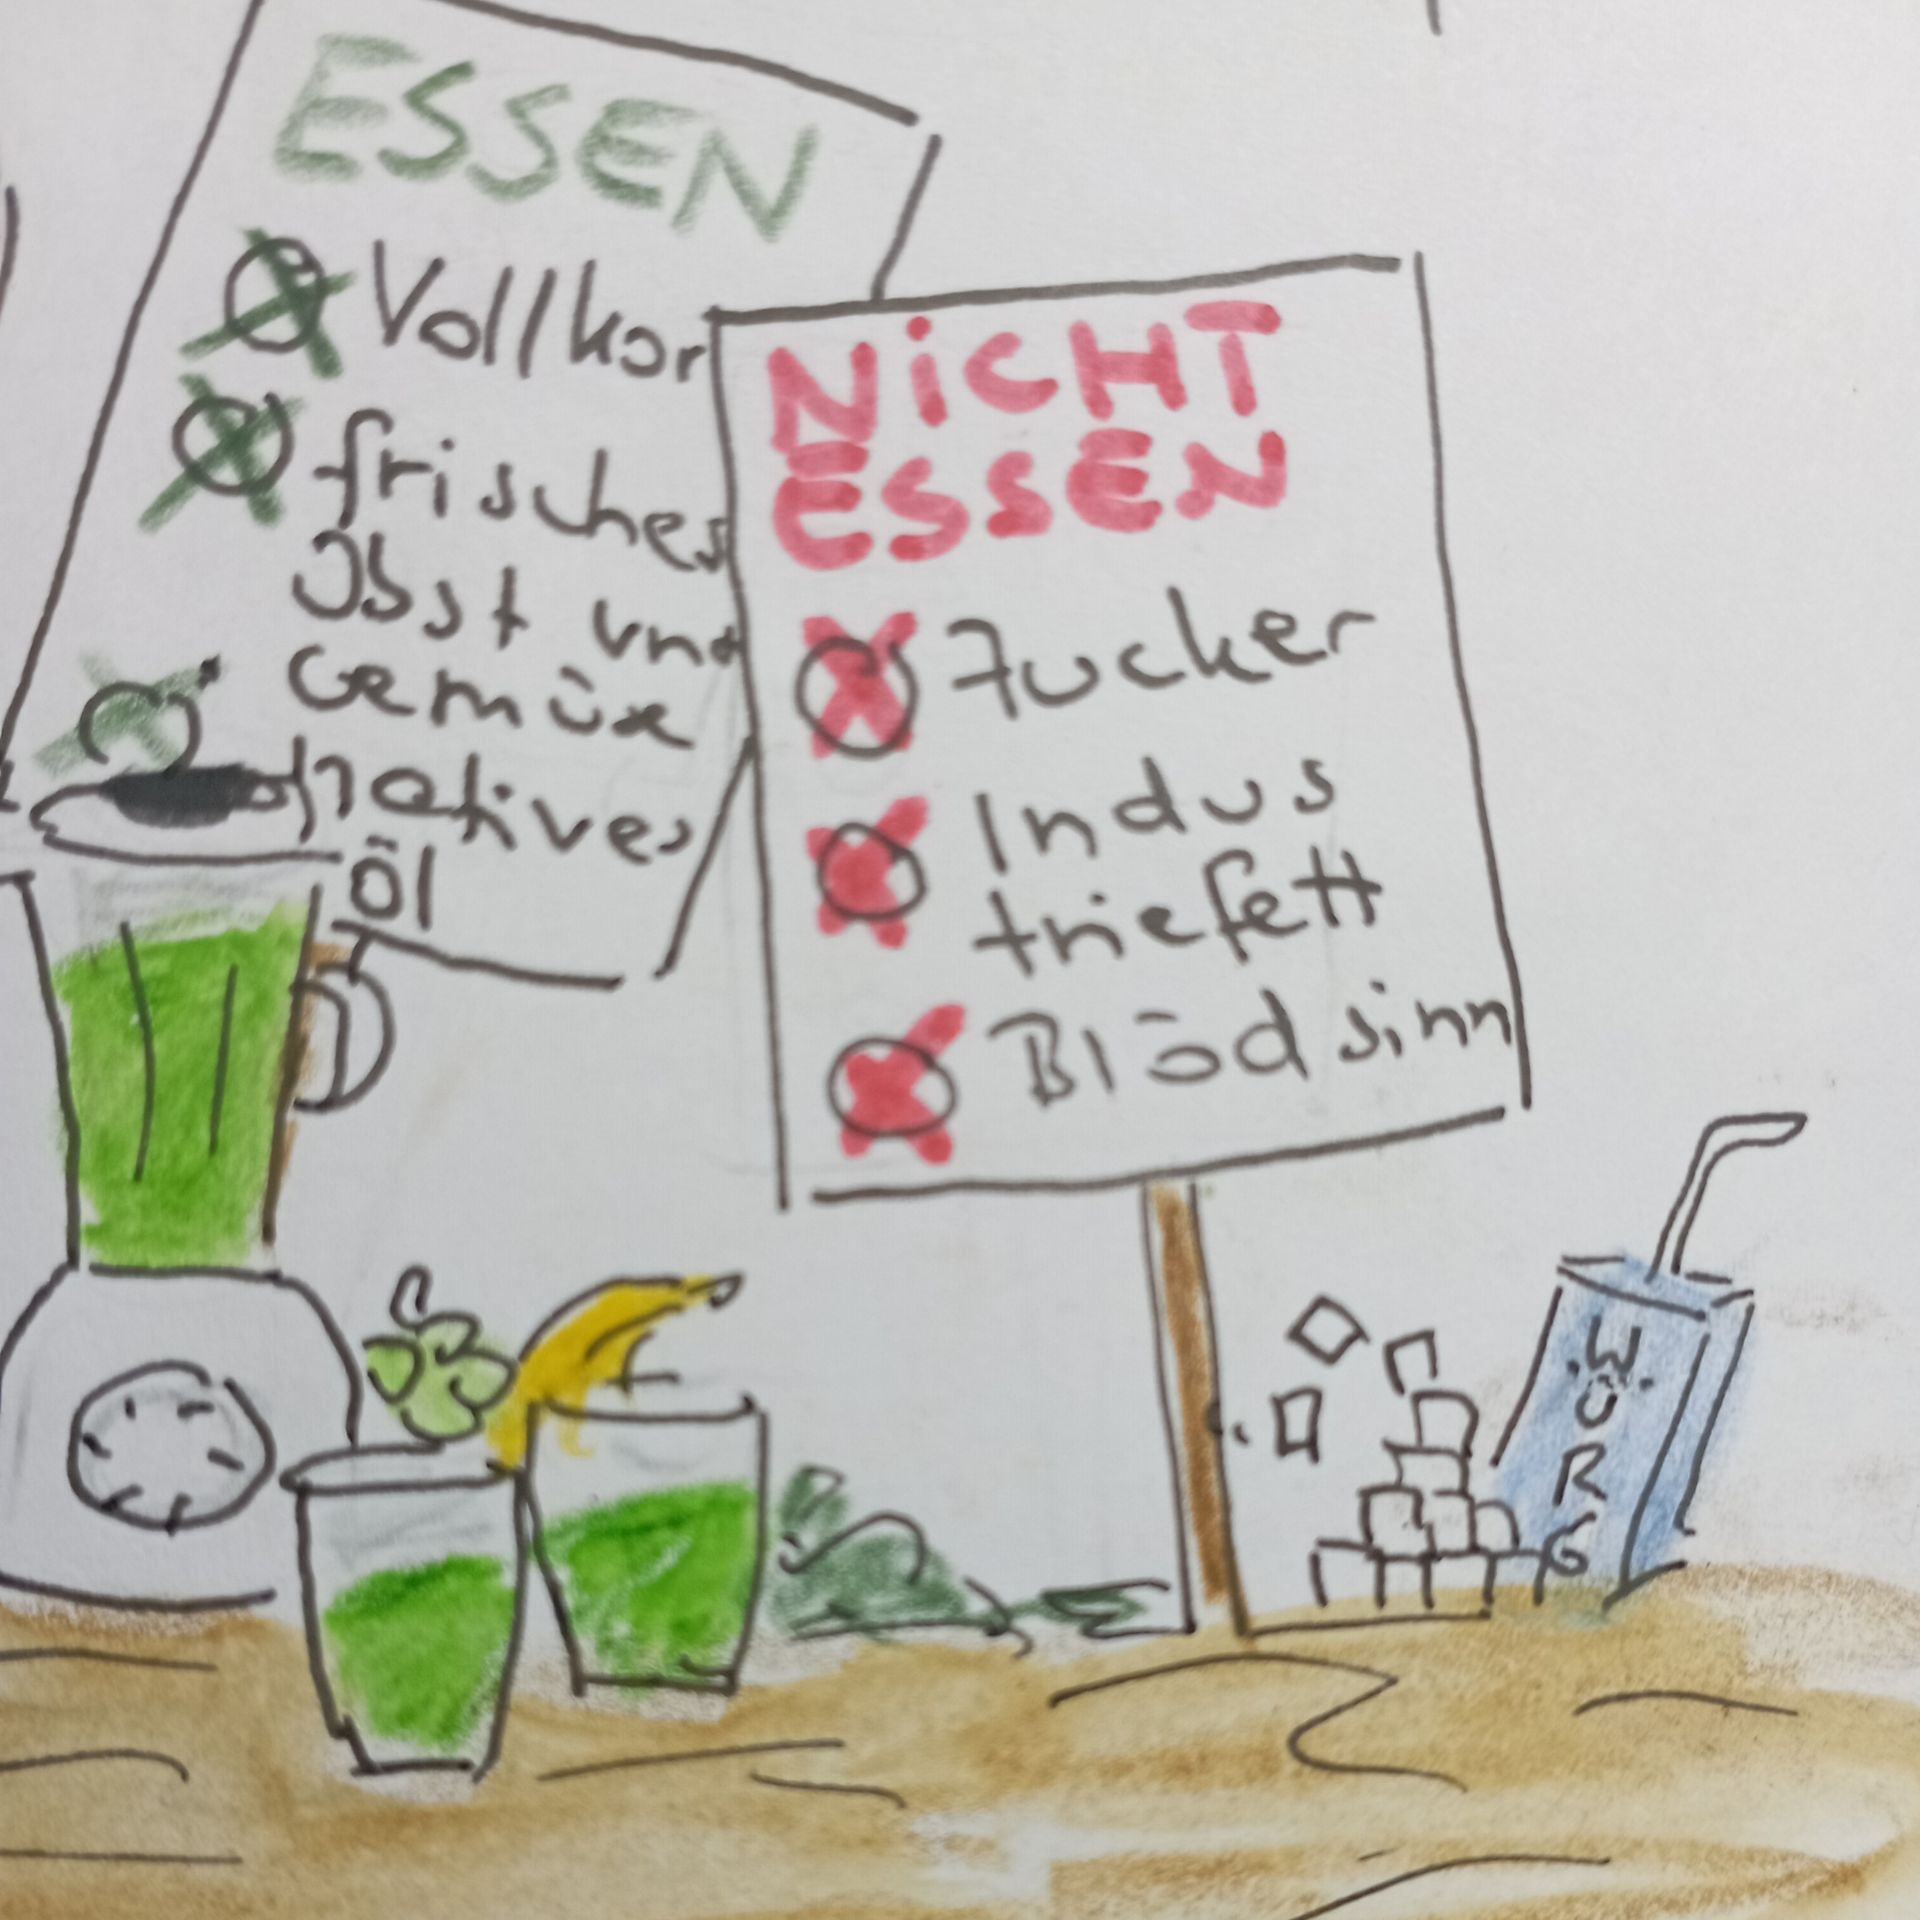 ESSEN
Vollkor
frisches
Obst und
Gemüse
natives
Öl
NiCHT
ESSEN
Zucker
Indus
triefett
Blödsinn
WÜRG